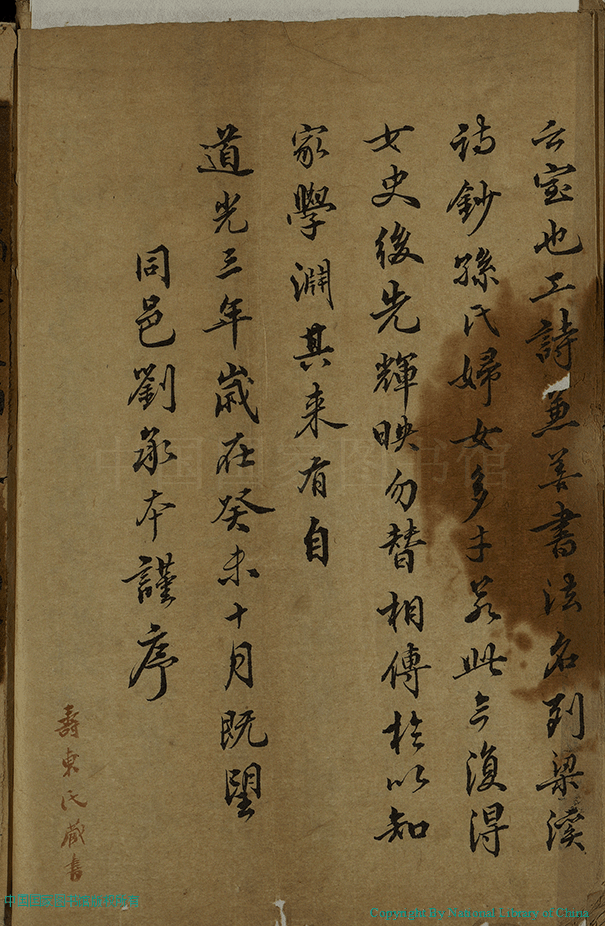 云室也工詩兼善書法名列梁溪
詩鈔孫氏婦女多才若此今復得
女史後先輝映勿替相傳於以知
家學淵其来有自
道光三年歲在癸未十月既望
同邑劉承本謹序
壽東氏藏書
中国国家图书馆
Copyright By National Library of China